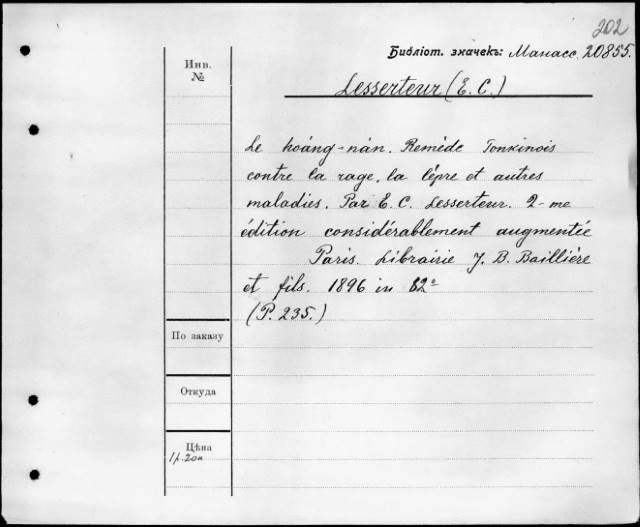 202
Библіот. значекъ: Манасс. 20855.
Инв.
№
Lesserteur (E. C.)
Le hoáng-nàn. Remède Tonkinois
contre la rage, la lèpre et autres
maladies. Par E. C. Lesserteur. 2-me
édition considérablement augmentée
Paris. Librairie J. B. Baillière
et fils. 1896 in 82º
(P. 235.)
По заказу
Откуда
Цѣна
1р.20к